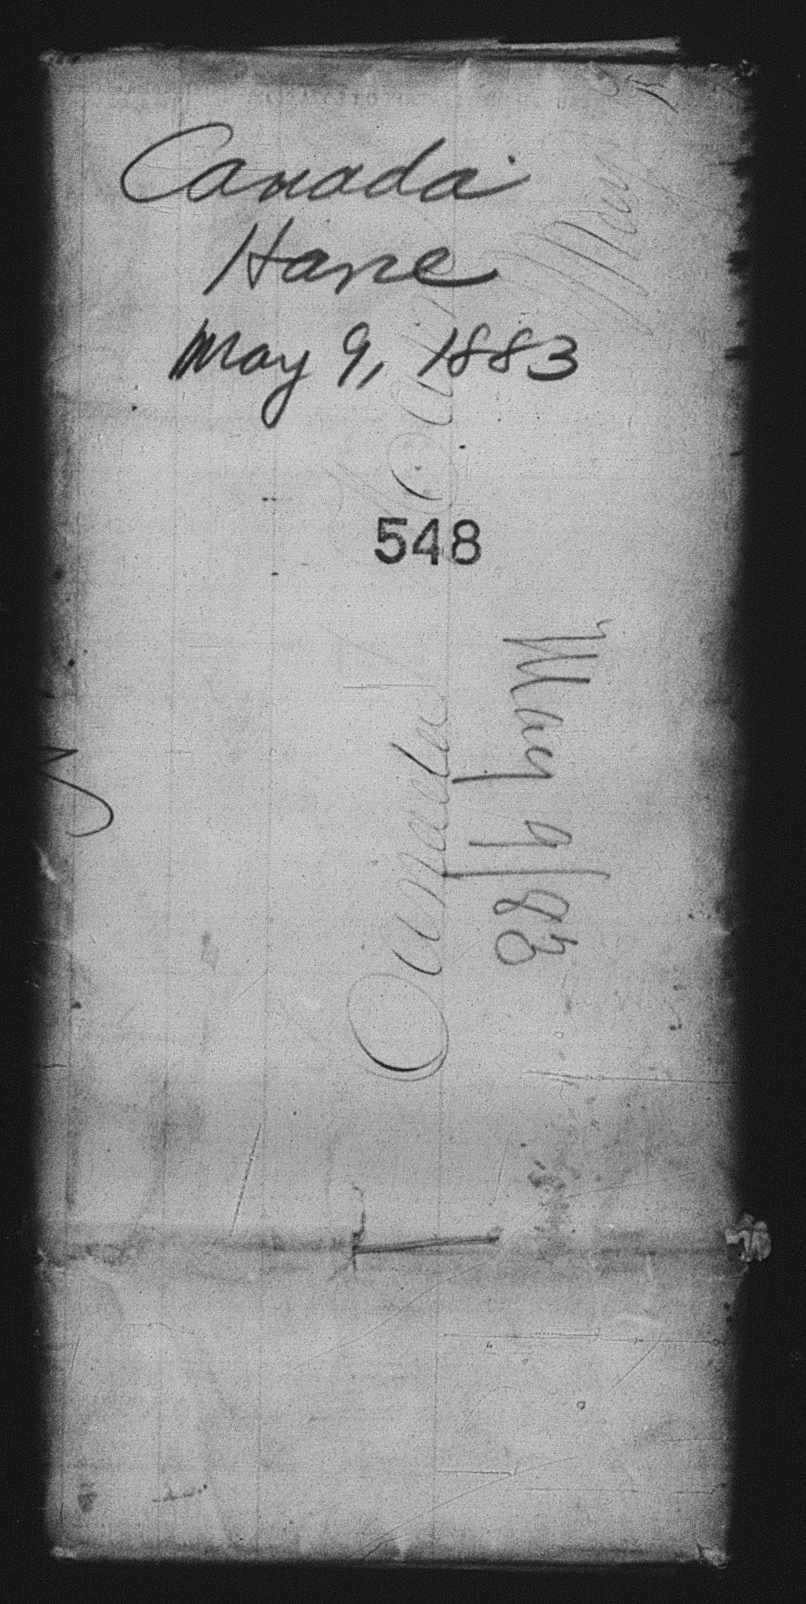 Canada
Hare
May 9, 1883
548
May 9/83
Canada
May